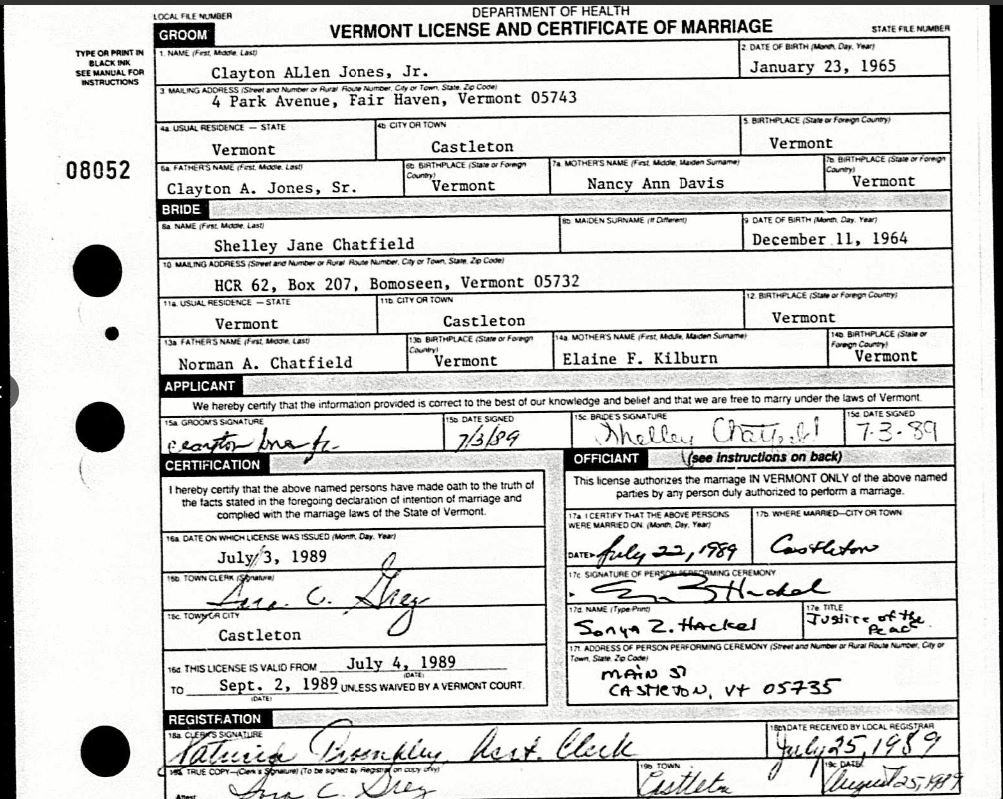 LOCAL FILE NUMBER
DEPARTMENT OF HEALTH
VERMONT LICENSE AND CERTIFICATE OF MARRIAGE
STATE FILE NUMBER
TYPE OR PRINT IN
BLACK INK
SEE MANUAL FOR
INSTRUCTIONS
08052
GROOM
1. NAME (First, Middle, Last)
Clayton ALlen Jones, Jr.
2. DATE OF BIRTH (Month, Day, Year)
January 23, 1965
3. MAILING ADDRESS (Street and Number or Rural Route Number, City or Town, State, Zip Code)
4 Park Avenue, Fair Haven, Vermont 05743
4a. USUAL RESIDENCE — STATE
Vermont
4b. CITY OR TOWN
Castleton
5. BIRTHPLACE (State or Foreign Country)
Vermont
6a. FATHER'S NAME (First, Middle, Last)
Clayton A. Jones, Sr.
6b. BIRTHPLACE (State or Foreign Country)
Vermont
7a. MOTHER'S NAME (First, Middle, Maiden Surname)
Nancy Ann Davis
7b. BIRTHPLACE (State or Foreign Country)
Vermont
BRIDE
8a. NAME (First, Middle, Last)
Shelley Jane Chatfield
8b. MAIDEN SURNAME (If Different)
9. DATE OF BIRTH (Month, Day, Year)
December 11, 1964
10. MAILING ADDRESS (Street and Number or Rural Route Number, City or Town, State, Zip Code)
HCR 62, Box 207, Bomoseen, Vermont 05732
11a. USUAL RESIDENCE — STATE
Vermont
11b. CITY OR TOWN
Castleton
12. BIRTHPLACE (State or Foreign Country)
Vermont
13a. FATHER'S NAME (First, Middle, Last)
Norman A. Chatfield
13b. BIRTHPLACE (State or Foreign Country)
Vermont
14a. MOTHER'S NAME (First, Middle, Maiden Surname)
Elaine F. Kilburn
14b. BIRTHPLACE (State or Foreign Country)
Vermont
APPLICANT
We hereby certify that the information provided is correct to the best of our knowledge and belief and that we are free to marry under the laws of Vermont.
15a. GROOM'S SIGNATURE
Clayton Jones Jr.
15b. DATE SIGNED
7/3/89
15c. BRIDE'S SIGNATURE
Shelley Chatfield
15d. DATE SIGNED
7-3-89
CERTIFICATION
I hereby certify that the above named persons have made oath to the truth of
the facts stated in the foregoing declaration of intention of marriage and
complied with the marriage laws of the State of Vermont.
16a. DATE ON WHICH LICENSE WAS ISSUED (Month, Day, Year)
July 3, 1989
16b. TOWN CLERK (Signature)
C.
16c. TOWN OR CITY
Castleton
16d. THIS LICENSE IS VALID FROM July 4, 1989
(DATE)
TO Sept. 2, 1989 UNLESS WAIVED BY A VERMONT COURT.
(DATE)
OFFICIANT (see instructions on back)
This license authorizes the marriage IN VERMONT ONLY of the above named
parties by any person duly authorized to perform a marriage.
17a. I CERTIFY THAT THE ABOVE PERSONS
WERE MARRIED ON: (Month, Day, Year)
DATE: July 22, 1989
17b. WHERE MARRIED—CITY OR TOWN
Castleton
17c. SIGNATURE OF PERSON PERFORMING CEREMONY
Hackel
17d. NAME (Type/Print)
Sonya Z. Hackel
17e. TITLE
Justice of the
Peace
17f. ADDRESS OF PERSON PERFORMING CEREMONY (Street and Number or Rural Route Number, City or
Town, State, Zip Code)
MAIN ST
CASTLETON, Vt 05735
REGISTRATION
18a. CLERK'S SIGNATURE
Patricia Trombley Asst. Clerk
18b. DATE RECEIVED BY LOCAL REGISTRAR
July 25, 1989
19a. TRUE COPY—(Clerk's Signature) (To be signed by Registrar on copy only)
Attest
C.
19b. TOWN
Castleton
19c. DATE
August 25, 1989